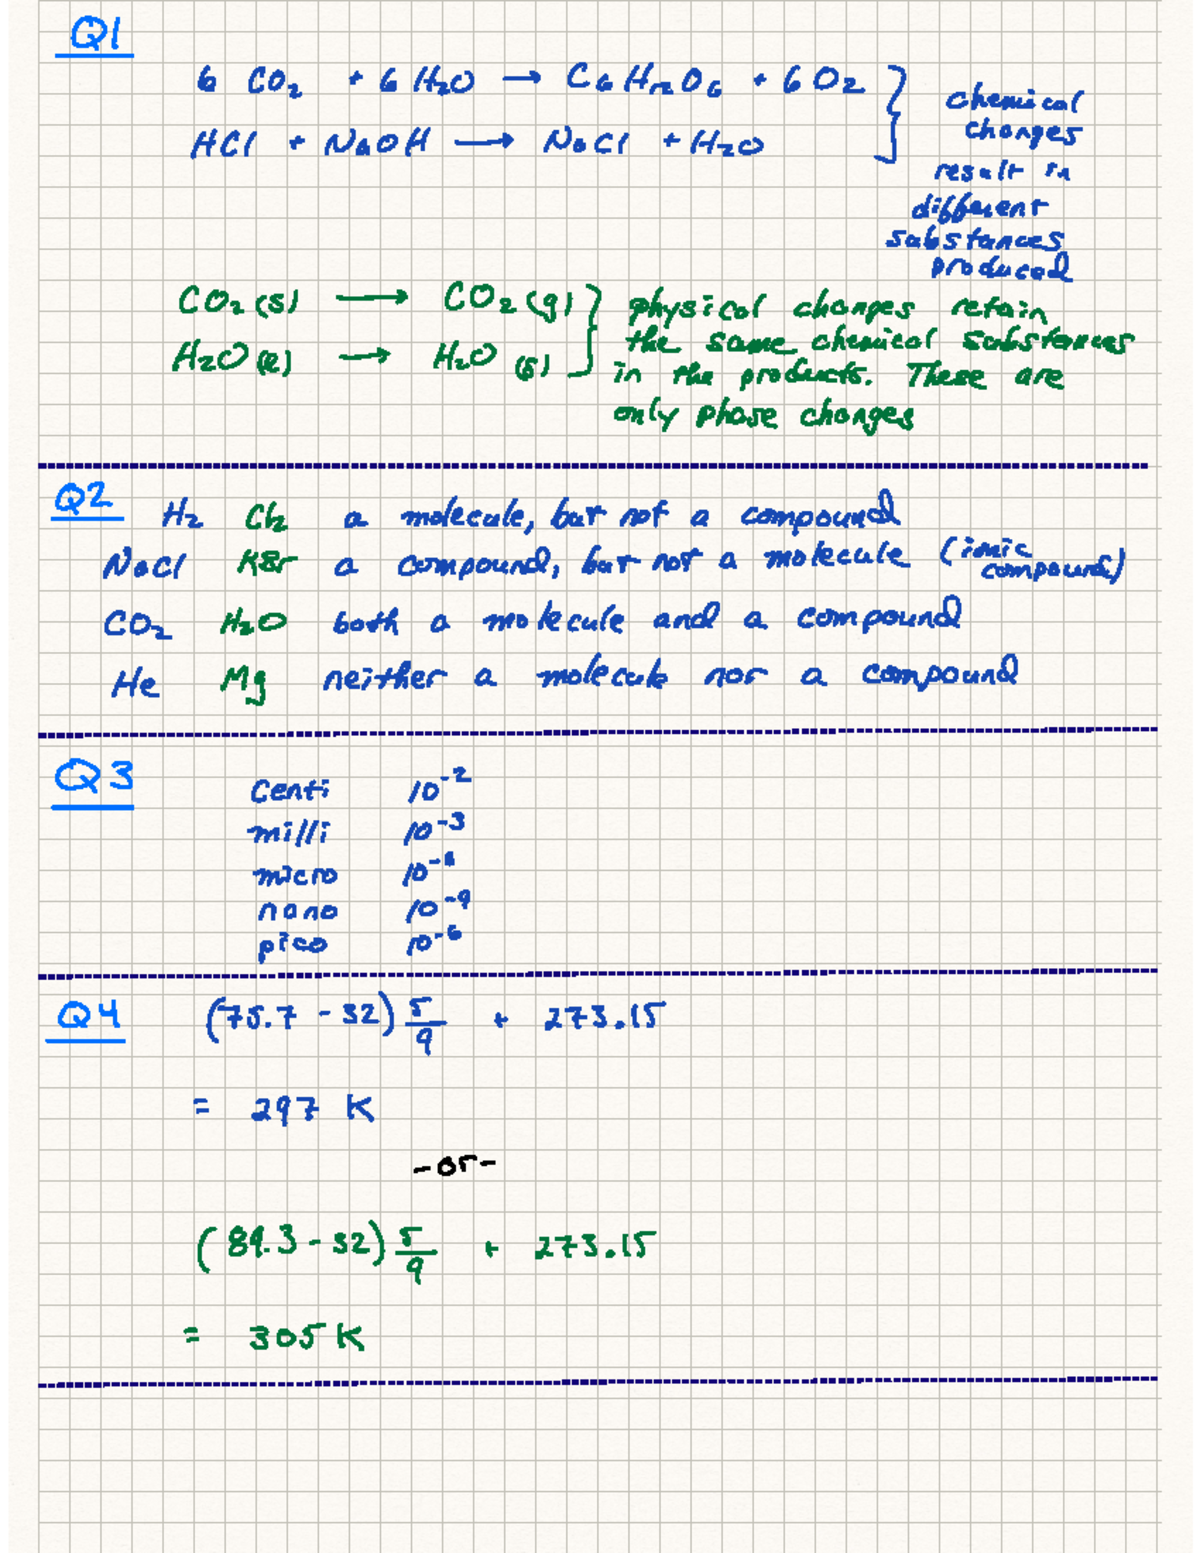 Q1
6 CO₂ + 6 H₂O → C₆H₁₂O₆ + 6 O₂ } chemical
HCl + NaOH → NaCl + H₂O changes
result in
different
substances
produced
CO₂ (s) → CO₂ (g) } physical changes retain
H₂O (l) → H₂O (s) the same chemical substances
in the products. These are
only phase changes
Q2 H₂ Cl₂ a molecule, but not a compound
NaCl KBr a compound, but not a molecule (ionic compound)
CO₂ H₂O both a molecule and a compound
He Mg neither a molecule nor a compound
Q3
Centi 10⁻²
milli 10⁻³
micro
nano 10⁻⁹
pico 10⁻⁶
Q4 (75.7 - 32) 5/9 + 273.15
= 297 K
-or-
(89.3 - 32) 5/9 + 273.15
= 305 K